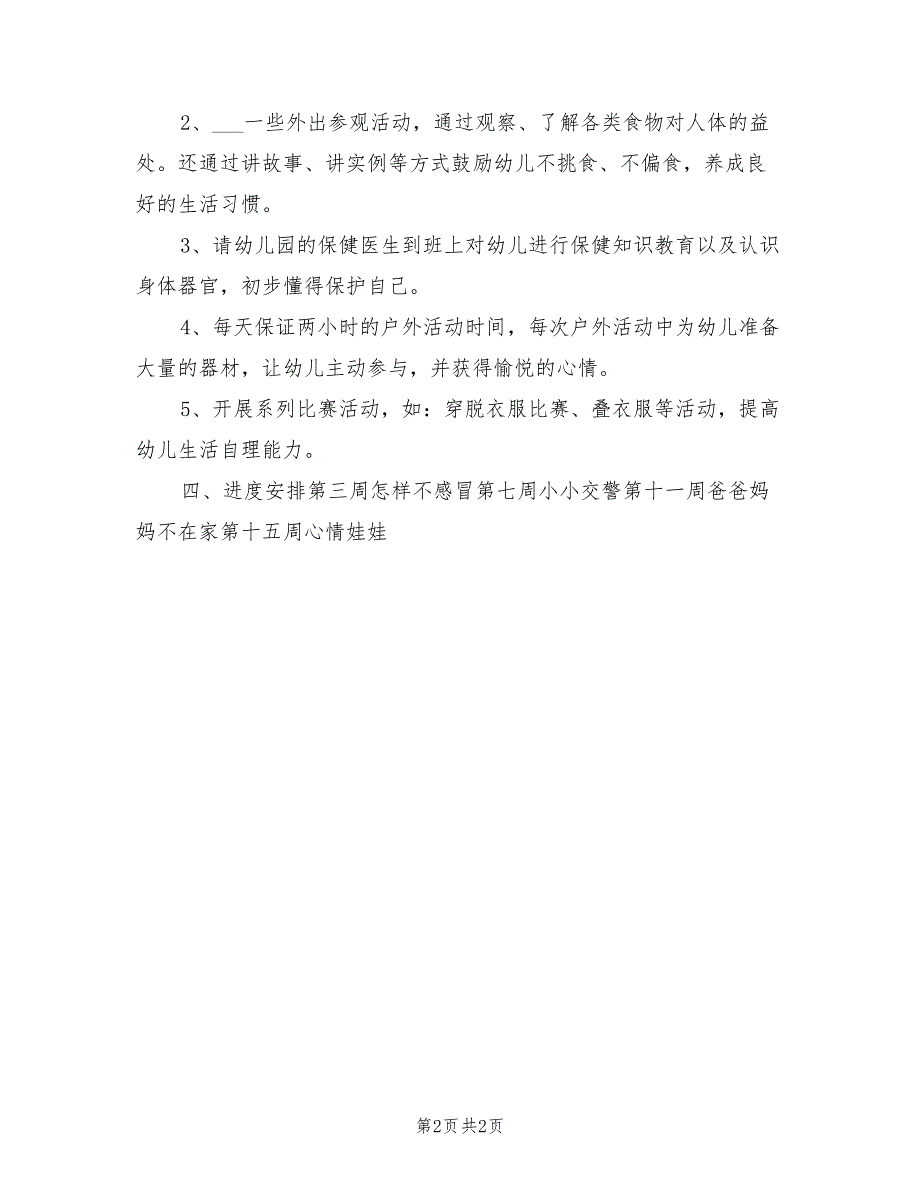 2、___一些外出参观活动，通过观察、了解各类食物对人体的益
处。还通过讲故事、讲实例等方式鼓励幼儿不挑食、不偏食，养成良
好的生活习惯。
3、请幼儿园的保健医生到班上对幼儿进行保健知识教育以及认识
身体器官，初步懂得保护自己。
4、每天保证两小时的户外活动时间，每次户外活动中为幼儿准备
大量的器材，让幼儿主动参与，并获得愉悦的心情。
5、开展系列比赛活动，如：穿脱衣服比赛、叠衣服等活动，提高
幼儿生活自理能力。
四、进度安排第三周怎样不感冒第七周小小交警第十一周爸爸妈
妈不在家第十五周心情娃娃
第2页共2页